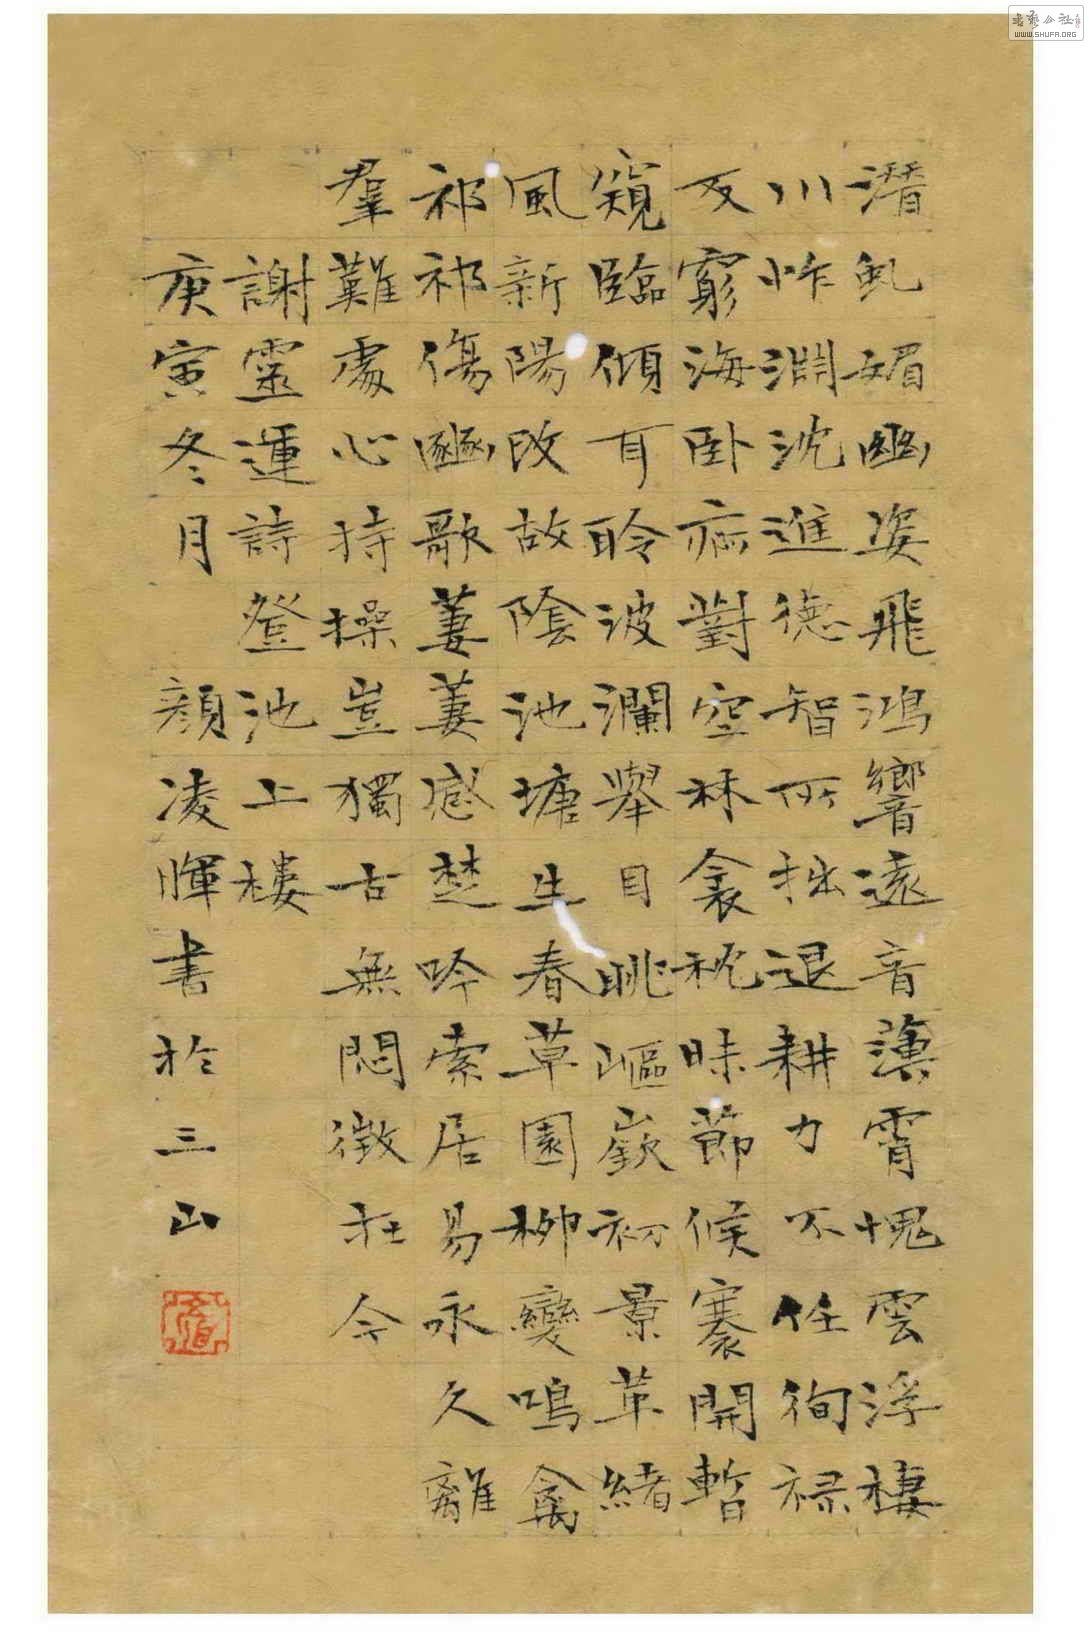 潛虬媚幽姿飛鴻響遠音薄霄愧雲浮棲
川怍淵沈進德智所拙退耕力不任徇祿
反窮海臥痾對空林衾枕昧節候褰開暫
窺臨傾耳聆波瀾舉目眺嶇嶔初景革緒
風新陽改故陰池塘生春草園柳變鳴禽
祁祁傷豳歌萋萋感楚吟索居易永久離
羣難處心持操豈獨古無悶徵在今
謝靈運詩登池上樓
庚寅冬月 顏凌暉書於三山
WWW.SHUFA.ORG